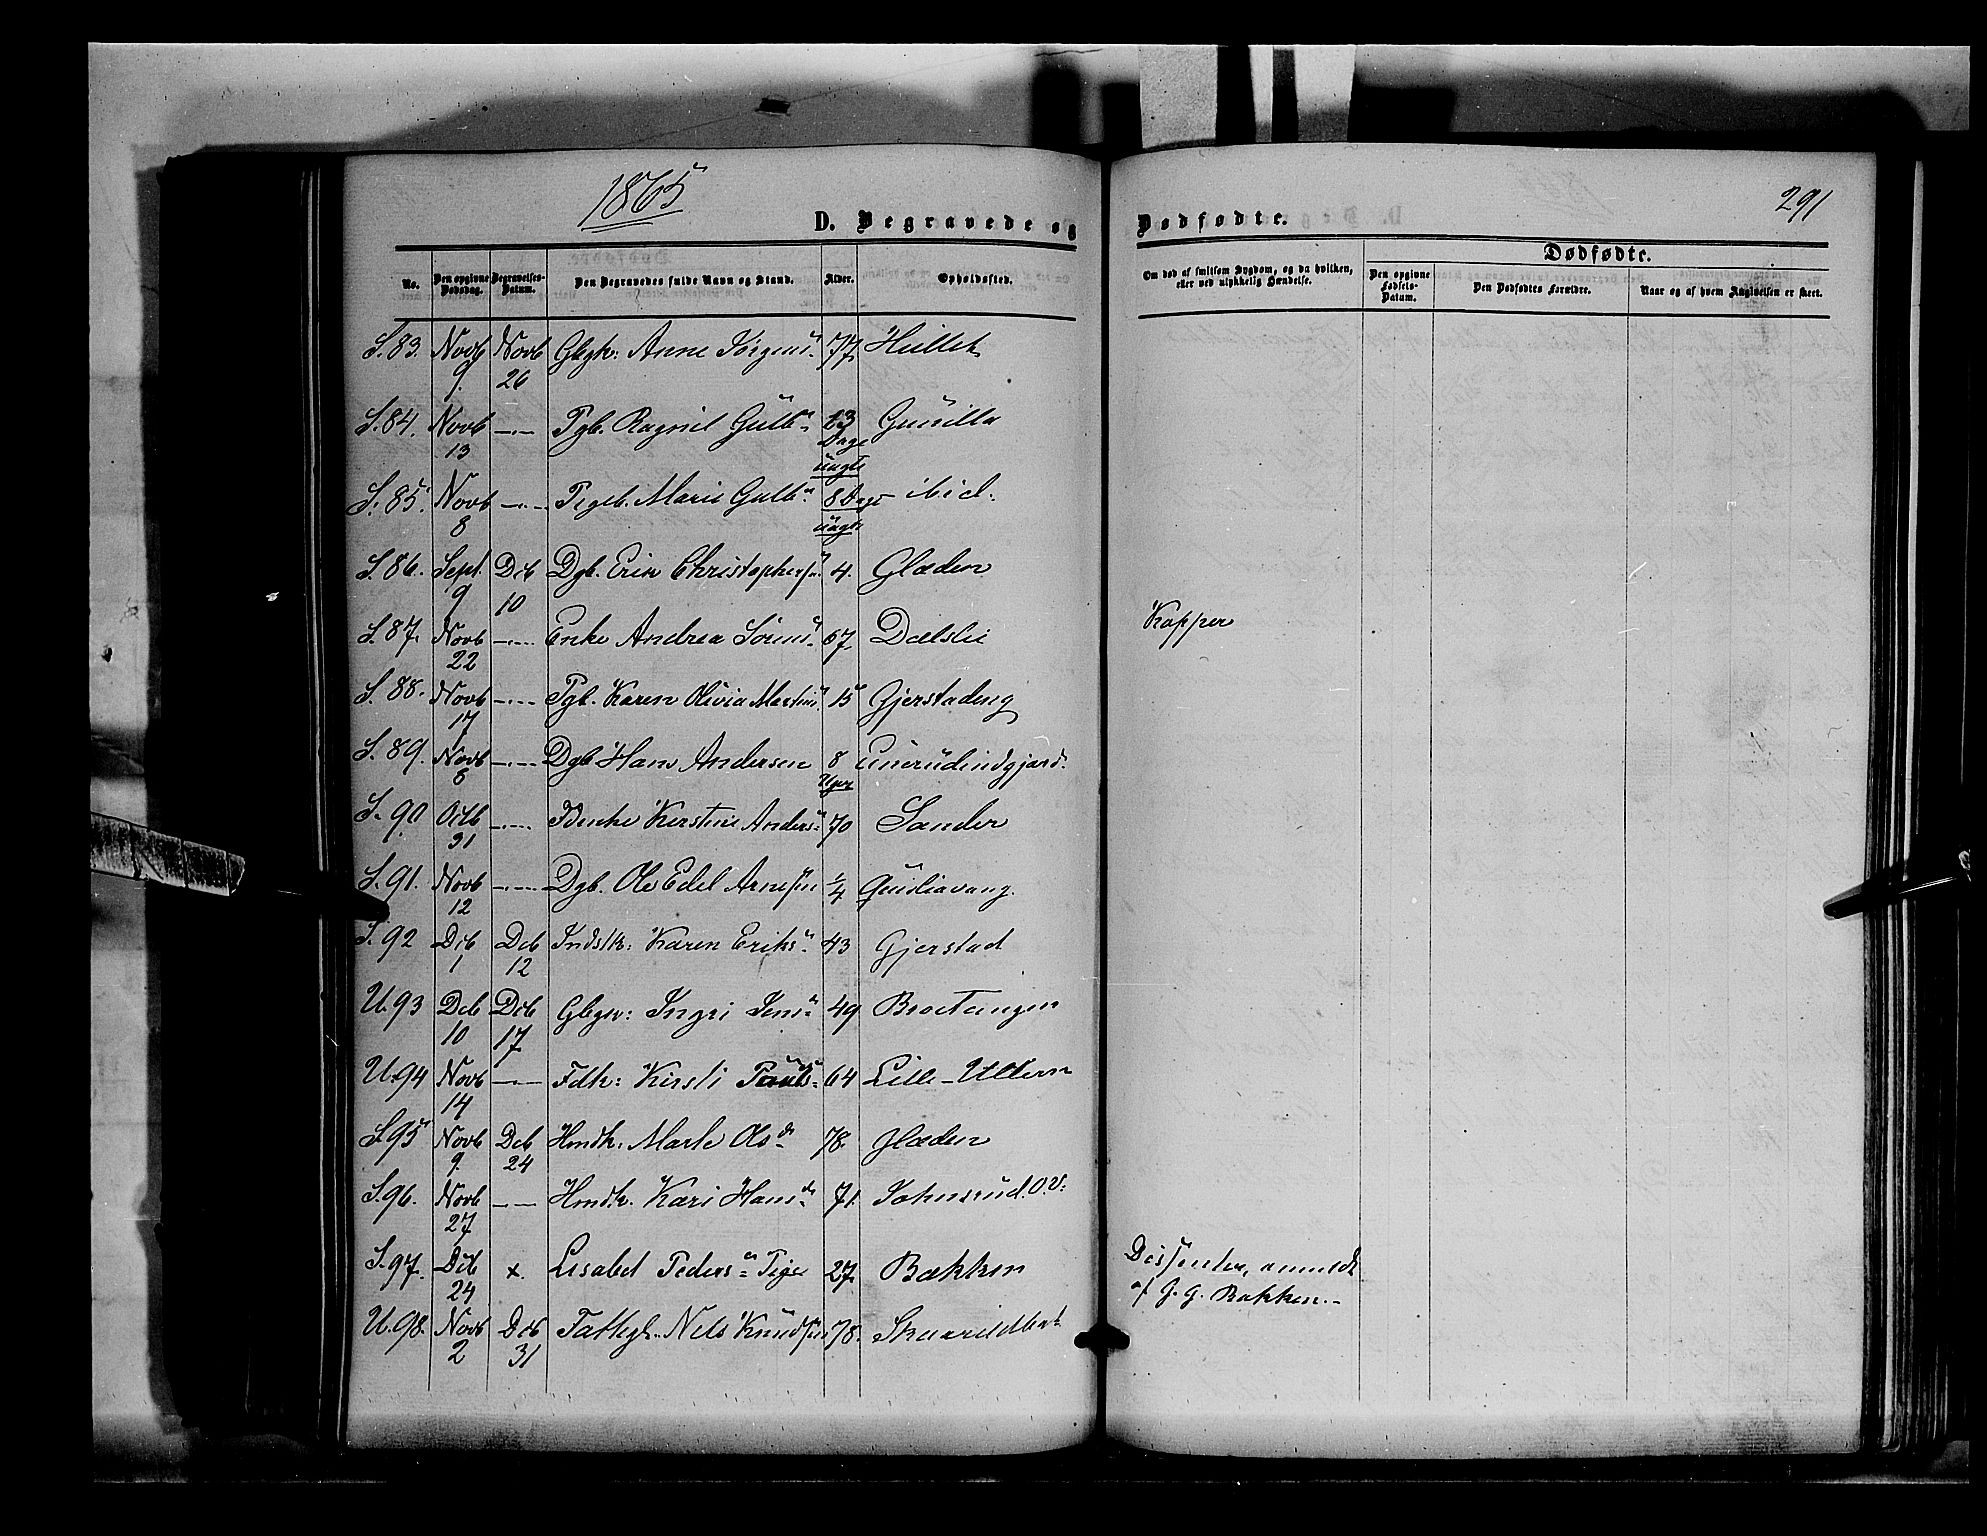 1865
291
D. Begravede og Dødfødte.
Dødfødte.
No. Den opgivne Dødsdag. Begravelses-Datum. Den Begravedes fulde Navn og Stand. Alder. Opholdssted. Om død af smitsom Sygdom, og da hvilken, eller ved ulykkelig Hændelse. Den opgivne Fødsels-Datum. Den Dødfødtes Forældre. Naar og af hvem Angivelsen er skeet.
S. 83. Novb 9. Novb 26 Gbgk: Anne Jörgens 77
S. 84. Novb 13 —"— Pgb. Ragnil Gulb 13 Dage uægte
S. 85. Novb 8 —"— Pigeb. Marie Gulb 8 Dage uægte ibid.
S. 86. Sept. 9 Deb 10 Dgb. Erik Christophersen 4. Glæden
S. 87. Novb 22 —"— Enke Andrea Sörens 67 Dælslie Kopper
S. 88. Novb 17 —"— Pgb. Karen Olivia Martins 15 Gjerstadeng
S. 89. Novb 8 —"— Dgb Hans Andersen 8 Uger
S. 90. Octb 31 —"— Kerstine Anders 70 Sander
S. 91. Novb 12 —"— Dgb. Ole Edel Arnesen ¼
S. 92 Deb 1 Deb 12 Indstk: Karen Eriks 43 Gjerstad
U. 93 Deb 10 Deb 17 Ingri Jens 49 Brotangen
U. 94 Novb 14 —"— Fdk: Kirsti Pouls 64 Lille-Ullern
S. 95 Novb 9. Deb 24 Hmdk: Marte Ols dr 78. Glæden
S. 96. Novb 27 —"— Hmdk. Kari Hans dr 71. Johnsrud. O.V.
S. 97. Deb 24 x. Lisabet Peders Pige 27 Bækken Dissenter, anmeldt
af G. G. Bakken.
U. 98. Novb 2 Deb 31 Fattigl. Nels Knudsen 78.